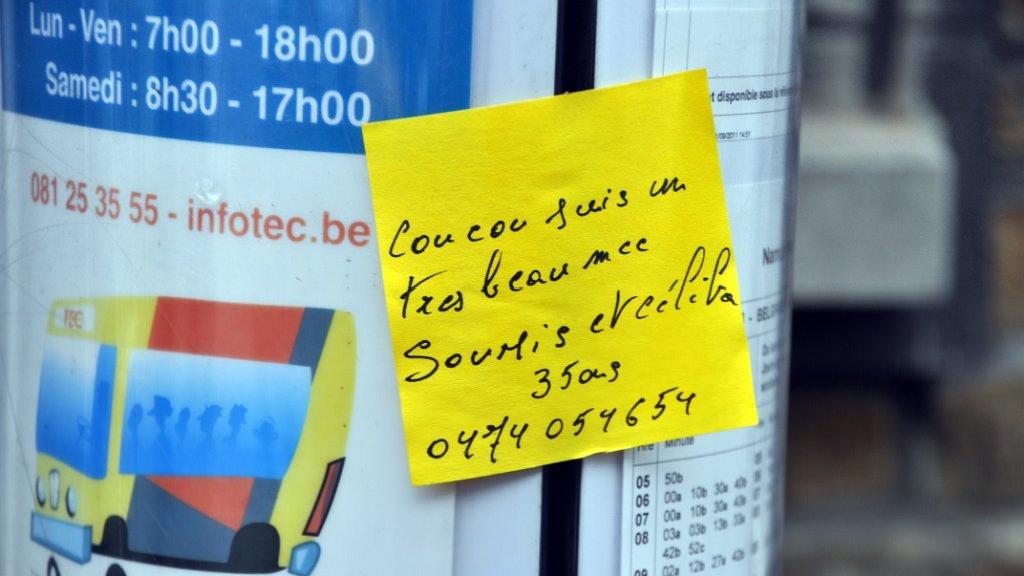 Lun - Ven : 7h00 - 18h00
Samedi : 8h30 - 17h00
081 25 35 55 - infotec.be
TEC
Coucou suis un
tres beau mec
Soumis et céliba
35 ans
0474 054654
t disponible sous la
/09/2011 14:51
Nam
- BELG
Hre Minute
05 50b
06 00a 10b 30a 40b
07 00a 10b 30a
08 03a 03b 13b 33a
42b 52c
09 02a 12b 27a 42b